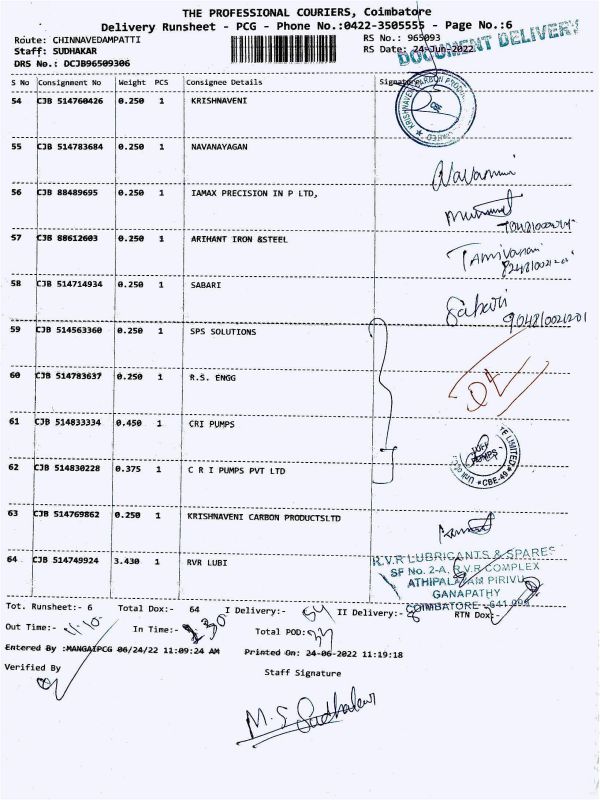 THE PROFESSIONAL COURIERS, Coimbatore
Delivery Runsheet - PCG - Phone No.:0422-3505555 - Page No.:6
Route: CHINNAVEDAMPATTI RS No.: 965093
Staff: SUDHAKAR RS Date: 24-Jun-2022
DRS No.: DCJB96509306
DOCUMENT DELIVERY
S No Consignment No Weight PCS Consignee Details Signature
54 CJB 514760426 0.250 1 KRISHNAVENI
55 CJB 514783684 0.250 1 NAVANAYAGAN
56 CJB 88489695 0.250 1 IAMAX PRECISION IN P LTD,
57 CJB 88612603 0.250 1 ARIHANT IRON &STEEL
58 CJB 514714934 0.250 1 SABARI
Sabari
59 CJB 514563360 0.250 1 SPS SOLUTIONS
60 CJB 514783637 0.250 1 R.S. ENGG
61 CJB 514833334 0.450 1 CRI PUMPS
62 CJB 514830228 0.375 1 C R I PUMPS PVT LTD
63 CJB 514769862 0.250 1 KRISHNAVENI CARBON PRODUCTSLTD
64 CJB 514749924 3.430 1 RVR LUBI
R.V.R LUBRICANTS & SPARES
SF No. 2-A, R.V.R COMPLEX
ATHIPALAYAM PIRIVU
GANAPATHY
COIMBATORE - 641 006
Tot. Runsheet:- 6 Total Dox:- 64 I Delivery:- II Delivery:- 8 RTN Dox:-
Out Time:- 11.10 In Time:- Total POD:-
Entered By :MANGAIPCG 06/24/22 11:09:24 AM Printed On: 24-06-2022 11:19:18
Verified By Staff Signature
M.S Sudhakar